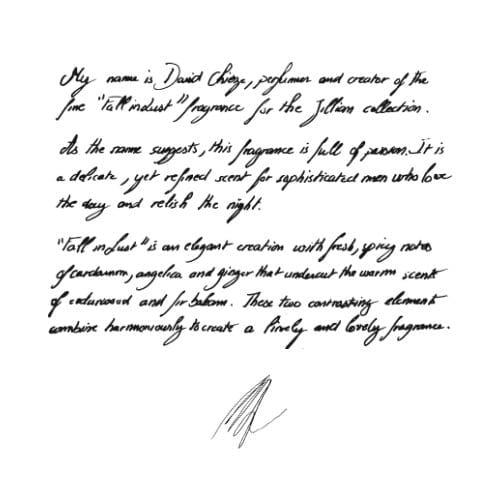 My name is David Chieze, perfumer and creator of the
fine "Fall in Lust" fragrance for the Jillian collection.
As the name suggests, this fragrance is full of passion. It is
a delicate, yet refined scent for sophisticated men who love
the day and relish the night.
"Fall in Lust" is an elegant creation with fresh, spicy notes
of cardamom, angelica and ginger that undercut the warm scent
of cedarwood and fir balsam. These two contrasting element
combine harmoniously to create a lively and lovely fragrance.